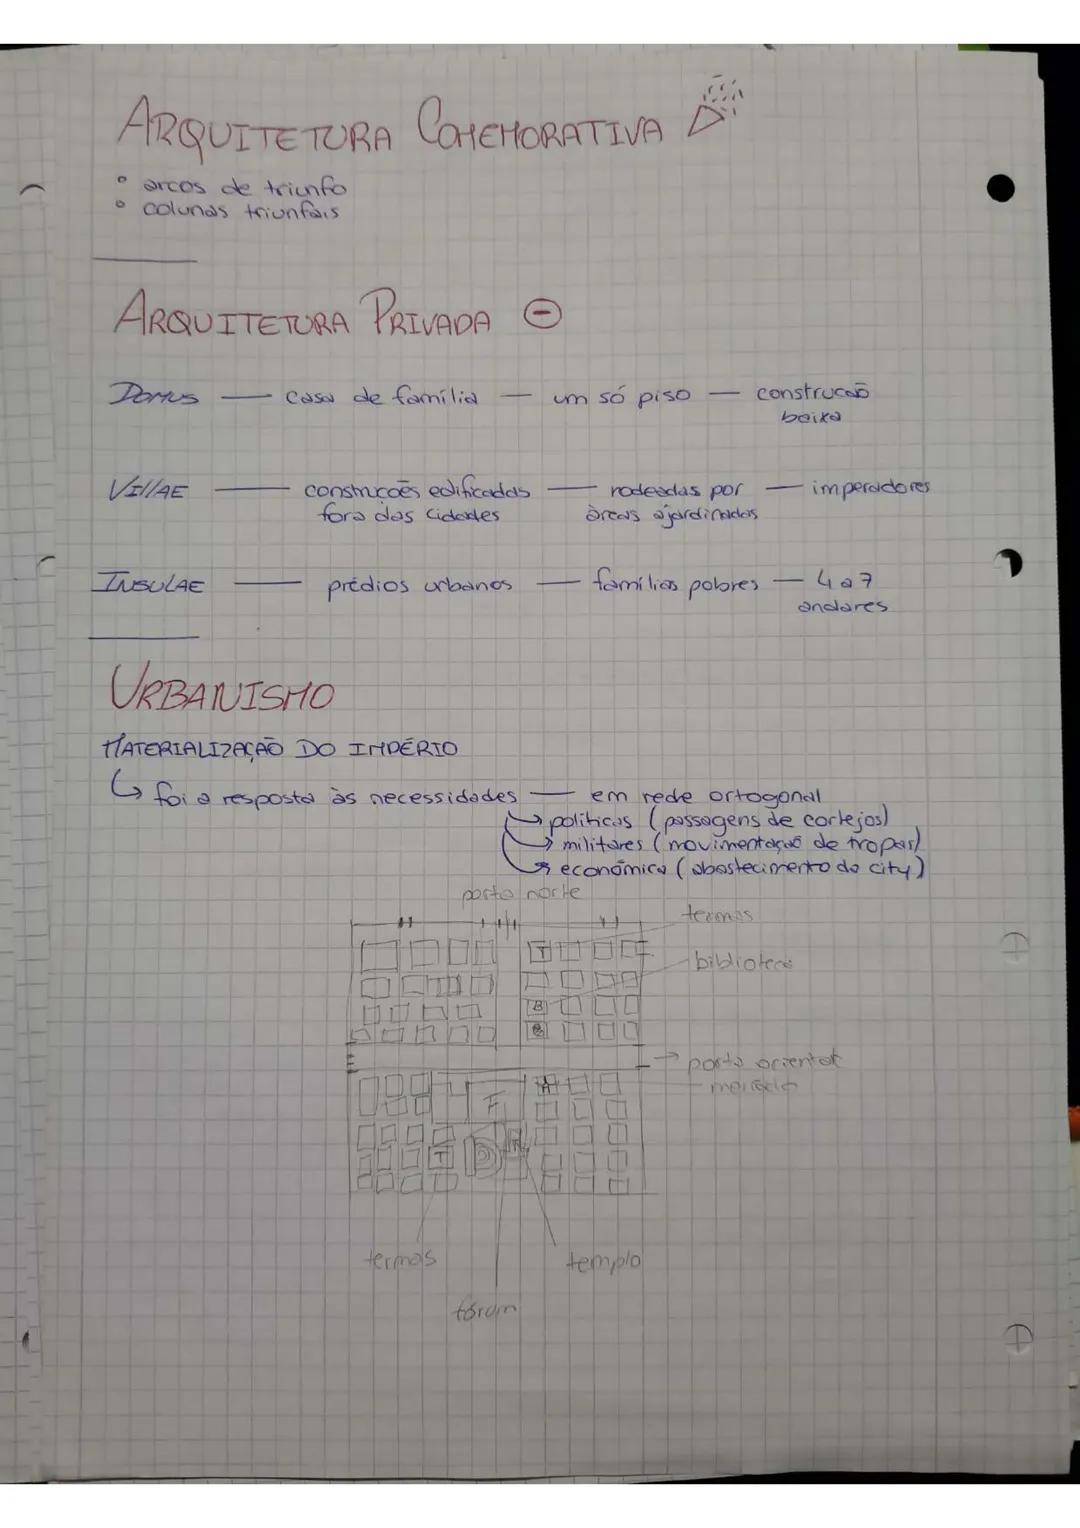 ARQUITETURA COMEMORATIVA
° arcos de triunfo
° colunas triunfais
ARQUITETURA PRIVADA
DOMUS — casa de família — um só piso — construcão
baixa
VIllAE — construções edificadas — rodeadas por — imperadores
fora das cidades áreas ajardinadas
INSULAE — prédios urbanos — famílias pobres — 4 a 7
andares
URBANISMO
MATERIALIZAÇÃO DO IMPÉRIO
↳ foi a resposta às necessidades — em rede ortogonal
→ políticas (passagens de cortejos)
→ militares (movimentação de tropas)
→ económica (abastecimento da city)
porta norte
termas
T
biblioteca
B
→ porta oriental
mercado
F
T
termas
templo
fórum